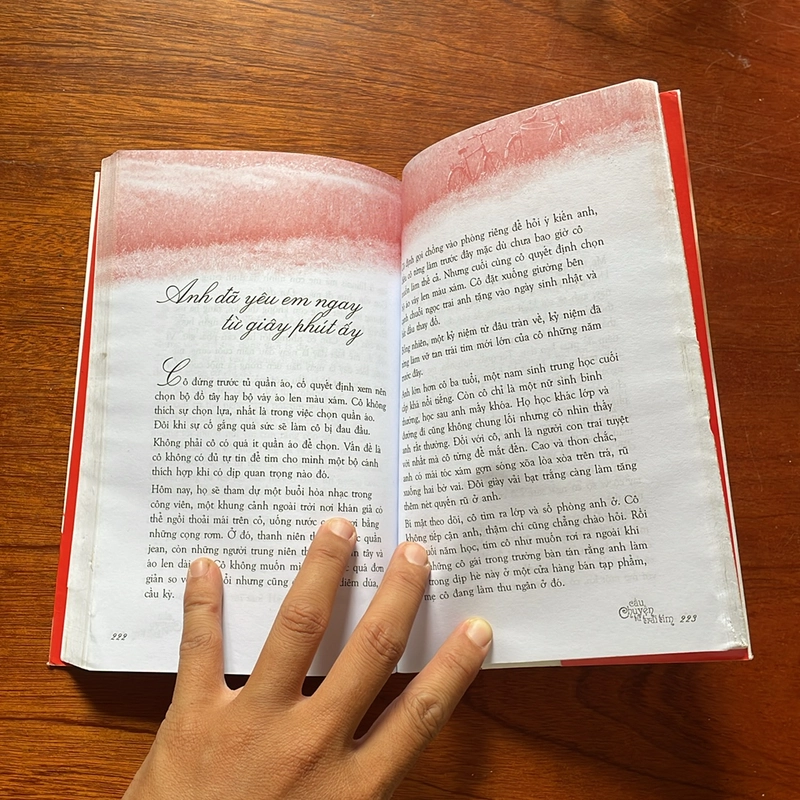 Anh đã yêu em ngay
từ giây phút ấy
Cô đứng trước tủ quần áo, cố quyết định xem nên
chọn bộ đồ tây hay bộ váy áo len màu xám. Cô không
thích sự chọn lựa, nhất là trong việc chọn quần áo.
Đôi khi sự cố gắng quá sức sẽ làm cô bị đau đầu.
Không phải cô có quá ít quần áo để chọn. Vấn đề là
cô không có đủ tự tin để tìm cho mình một bộ cánh
thích hợp khi có dịp quan trọng nào đó.
Hôm nay, họ sẽ tham dự một buổi hòa nhạc trong
công viên, một khung cảnh ngoài trời nơi khán giả có
thể ngồi thoải mái trên cỏ, uống nước bằng
những cọng rơm. Ở đó, thanh niên quần
jean, còn những người trung niên thì tây và
áo len dài Cô không muốn quá đơn
giản so nhưng cũng diêm dúa,
cầu kỳ.
222
định gọi chồng vào phòng riêng để hỏi ý kiến anh,
cô từng làm trước đây mặc dù chưa bao giờ cô
làm thế cả. Nhưng cuối cùng cô quyết định chọn
áo váy len màu xám. Cô đặt xuống giường bên
chuỗi ngọc trai anh tặng vào ngày sinh nhật và
đầu thay đồ.
nhiên, một kỷ niệm từ đâu tràn về, kỷ niệm đã
làm vỡ tan trái tim mới lớn của cô những năm
trước đây.
Anh lớn hơn cô ba tuổi, một nam sinh trung học cuối
cấp khá nổi tiếng. Còn cô chỉ là một nữ sinh bình
thường, học sau anh mấy khóa. Họ học khác lớp và
đường đi cũng không chung lối nhưng cô nhìn thấy
anh rất thường. Đối với cô, anh là người con trai tuyệt
vời nhất mà cô từng để mắt đến. Cao và thon chắc,
anh có mái tóc xám gợn sóng xõa lòa xòa trên trán, rũ
xuống hai bờ vai. Đôi giày vải bạt trắng càng làm tăng
thêm nét quyến rũ ở anh.
Bí mật theo dõi, cô tìm ra lớp và số phòng anh ở. Cô
không tiếp cận anh, thậm chí cũng chẳng chào hỏi. Rồi
cuối năm học, tim cô như muốn rơi ra ngoài khi
những cô gái trong trường bàn tán rằng anh làm
trong dịp hè này ở một cửa hàng bán tạp phẩm,
mẹ cô đang làm thu ngân ở đó.
câu
Chuyện
trái tim 223